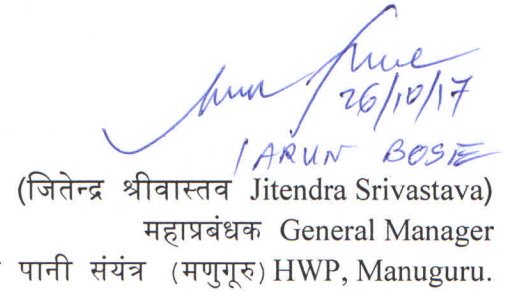 26/10/17
ARUN BOSE
(जितेन्द्र श्रीवास्तव Jitendra Srivastava)
महाप्रबंधक General Manager
पानी संयंत्र (मणुगूरु) HWP, Manuguru.